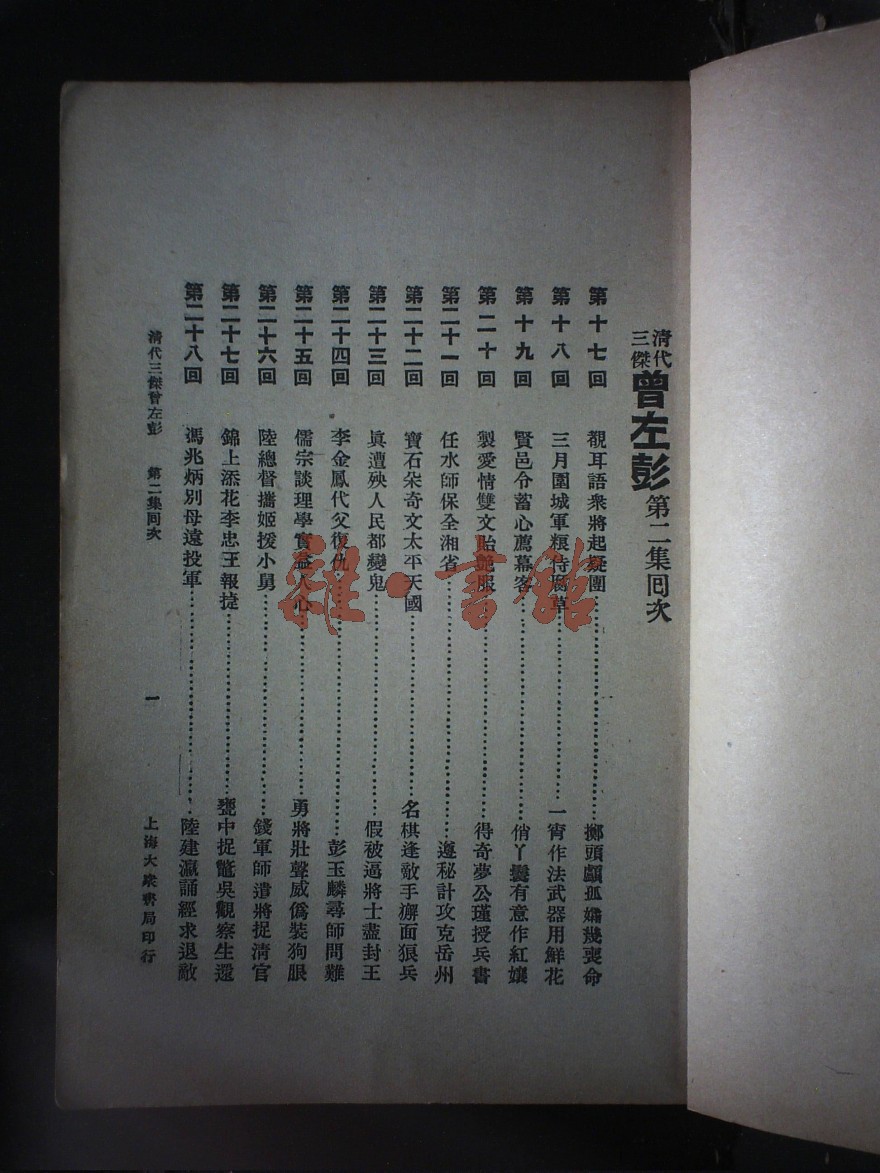 清代三傑 曾左彭 第二集回次
第十七回 覩耳語衆將起疑團……擲頭顱孤孀幾喪命
第十八回 三月圍城軍糧待腐草……一宵作法武器用鮮花
第十九回 賢邑令蓄心薦幕客……俏丫鬟有意作紅孃
第二十回 製愛情雙文貽艶服……得奇夢公瑾授兵書
第二十一回 任水師保全湘省……遵秘計攻克岳州
第二十二回 寶石朵奇文太平天國……名棋逢敵手獬面狼兵
第二十三回 眞遭殃人民都變鬼……假被逼將士盡封王
第二十四回 李金鳳代父復仇……彭玉麟尋師問難
第二十五回 儒宗談理學實益人心……勇將壯聲威僞裝狗眼
第二十六回 陸總督攜姬援小舅……錢軍師遣將捉清官
第二十七回 錦上添花李忠王報捷……甕中捉鼈吳觀察生還
第二十八回 馮兆炳別母遠投軍……陸建瀛誦經求退敵
清代三傑曾左彭 第二集回次 一 上海大衆書局印行
雜·書館